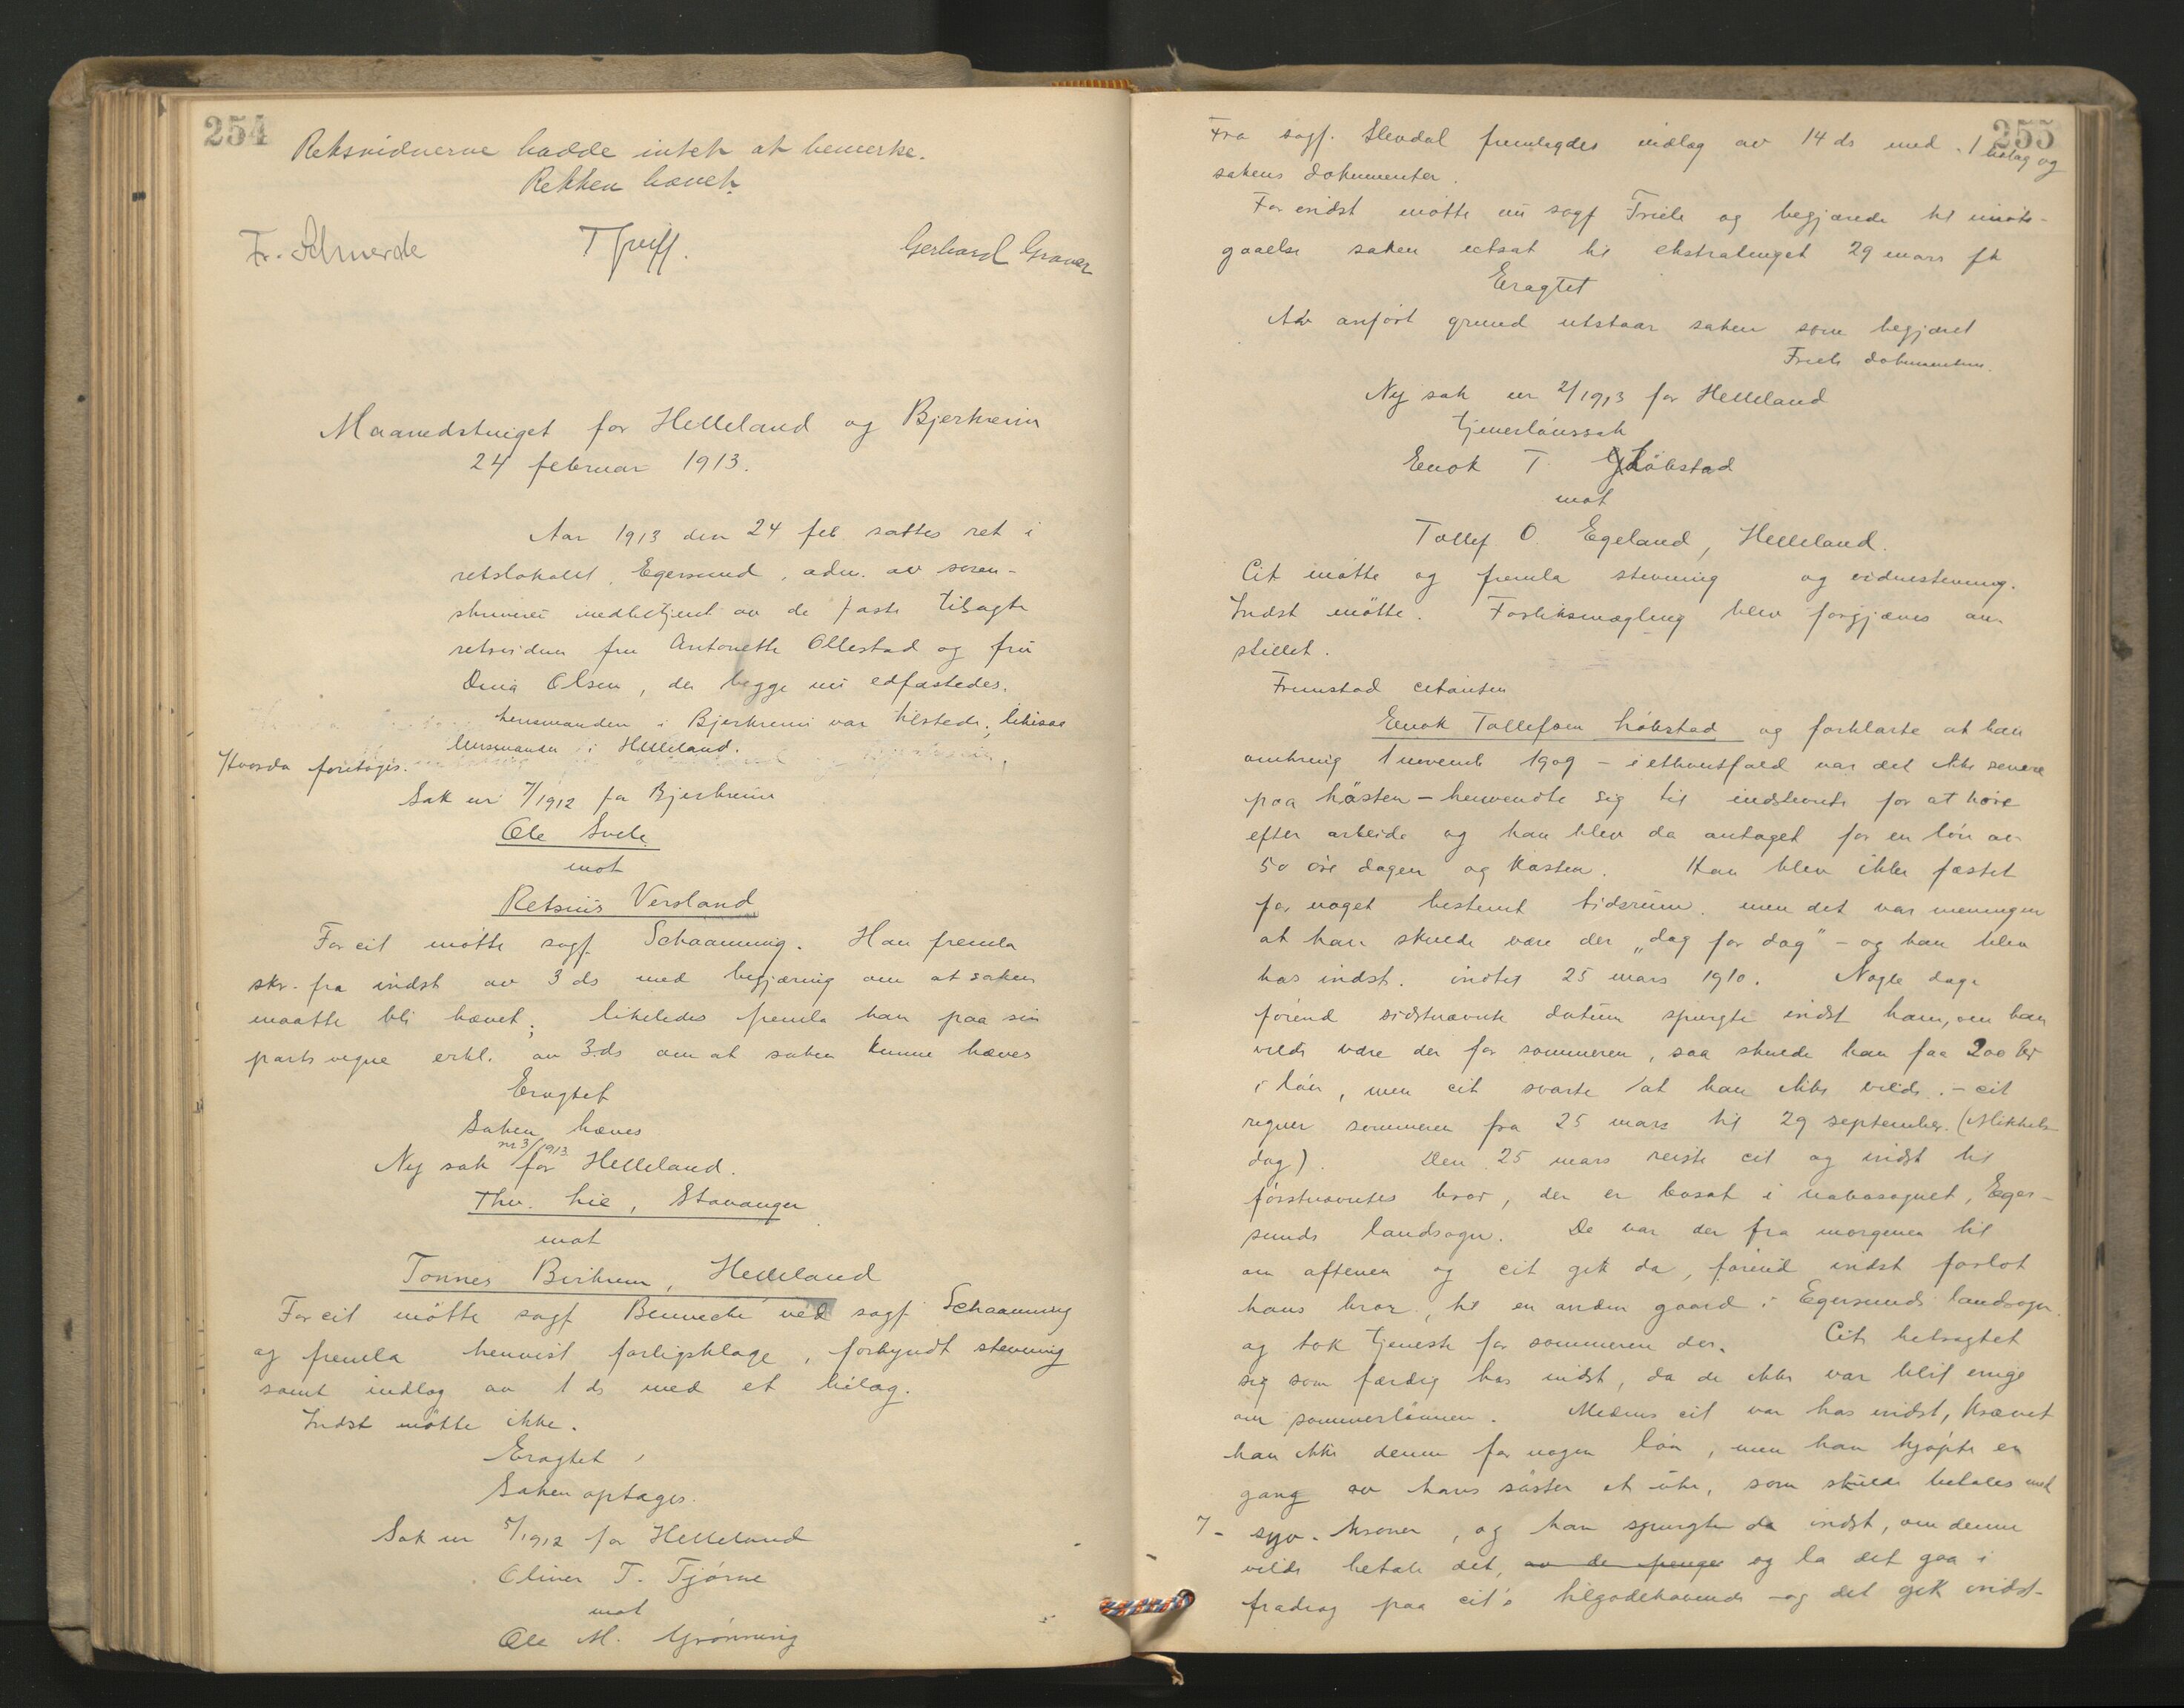 254
Retsvidnerne hadde intet at bemerke.
Retten hævet.
Fr. Schwerdt
Gerhard Graver
Maanedstinget for Helleland og Bjerkreim
24 februar 1913.
Aar 1913 den 24 feb. sattes ret i
retslokalet, Egersund, adm. av soren-
skriveren medbetjent av de faste tilsagte
retsvidner fru Antonette Ollestad og fru
Olsen, der begge nu edfæstedes.
Lensmanden i Bjerkreim var tilstede, likesaa
lensmanden i Helleland.
Hvorda foretoges.
Sak nr 7/1912 for Bjerkreim
Ole Svele
mot
Rasmus Versland
For cit møtte sagf. Schaanning. Han fremla
skr. fra indst av 3 ds med begjæring om at saken
maatte bli hævet; likeledes fremla han paa sin
parts vegne erkl. av 3 ds om at saken kunne hæves
Eragtet
Saken hæves
nr 3/1913
Ny sak for Helleland.
Thv. Lie, Stavanger
mot
Tønnes Birkrem, Helleland
For cit møtte sagf Benneche ved sagf Schaanning
og fremla henvist forligsklage, forkyndt stevning
samt indlæg av 1 ds med et bilag.
Indst møtte ikke.
Eragtet
Saken optages.
Sak nr 5/1912 for Helleland
Oliver T. Tjørne
mot
Ole M. Grønning
255
Fra sagf. Slevdal fremlagdes indlæg av 14 ds med 1 bilag og
sakens dokumenter.
For indst møtte nu sagf Friele og begjærede til imøte-
gaaelse saken utsat til ekstratinget 29 mars ft
Eragtet
Av anført grund utstaar saken som begjæret
Friele dokumenterne.
Ny sak nr 2/1913 for Helleland
tjenerlønssak
Enok T. Løbstad
mot
Tollef O. Egeland, Helleland.
Cit møtte og fremla stevning og vidnestevning.
Indst møtte. Forliksmægling blev forgjæves an-
stillet.
Fremstod citanten
Enok Tollefsen Løbstad og forklarte at han
omkring 1 novemb 1909 - i ethvertfald var det ikke senere
paa høsten - henvendte sig til indstevnte for at høre
efter arbeide og han blev da antaget for en løn av
50 øre dagen og kosten. Han blev ikke fæstet
for noget bestemt tidsrum, men det var meningen
at han skulde være der "dag for dag" - og han blev
hos indst. indtil 25 mars 1910. Nogle dage
førend sidstnævnte datum spurgte indst ham, om han
vilde være der for sommeren, saa skulde han faa 200 kr
i løn, men cit svarte at han ikke vilde. - cit
regner sommeren fra 25 mars til 29 september. (Mikkels-
dag). Den 25 mars reiste cit og indst til
førstnævntes bror, der er bosat i nabosognet, Eger-
sunds landsogn. De var der fra morgenen til
om aftenen og cit gik da, førend indst forlot
hans bror, til en anden gaard i Egersunds landsogn
og tok tjeneste for sommeren der. Cit betragtet
sig som færdig hos indst, da de ikke var blit enige
om sommerlønnen. Medens cit var hos indst, krævet
han ikke denne for nogen løn, men han kjøpte en
gang av hans søster et uhr, som skulde betales med
7 - syv - kroner, og han spurgte da indst, om denne
vilde betale det, av de penger og la det gaa i
fradrag paa cit's tilgodehavende - og det gik indst-